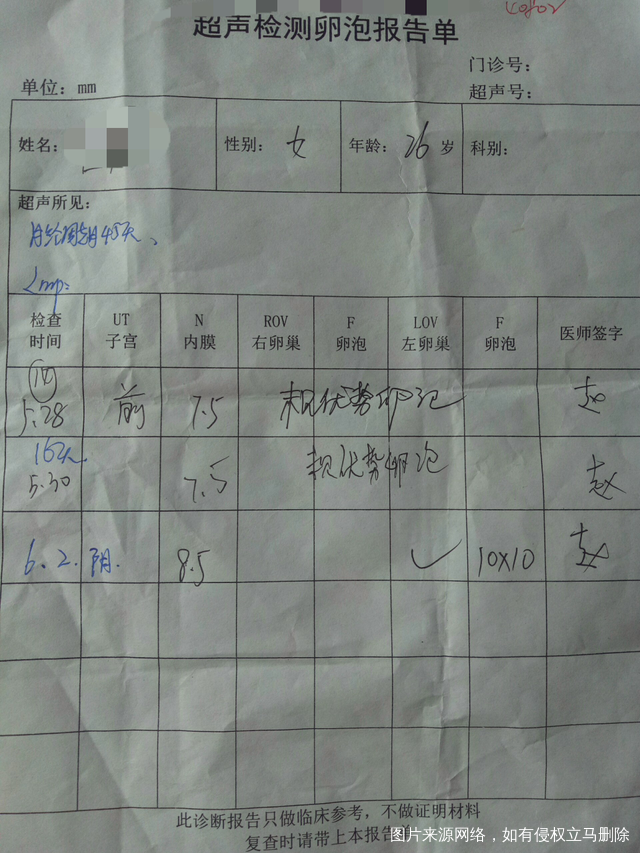 超声检测卵泡报告单
门诊号：
单位：mm
超声号：
姓名： 性别：女 年龄：26岁 科别：
超声所见：
月经周期45天、
Lmp：
检查时间 UT子宫 N内膜 ROV右卵巢 F卵泡 LOV左卵巢 F卵泡 医师签字
5.28 前 7.5 未见优势卵泡 赵
16天
5.30 7.5 未见优势卵泡 赵
6.2 阴. 8.5 ✓ 10X10 赵
此诊断报告只做临床参考，不做证明材料
复查时请带上本报告
图片来源网络，如有侵权立马删除